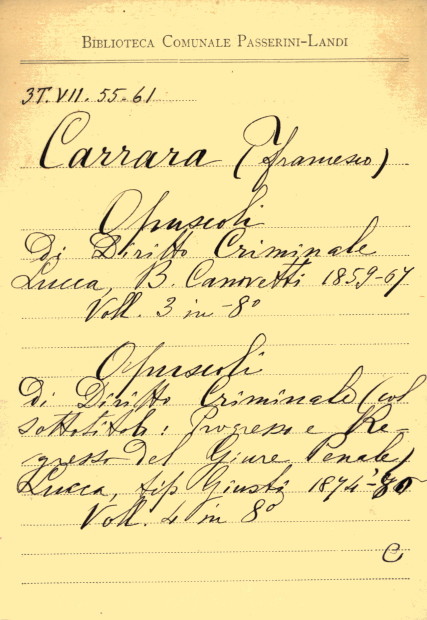 BIBLIOTECA COMUNALE PASSERINI-LANDI
3T.VII.55-61
Carrara (Francesco)
Opuscoli
Di Diritto Criminale
Lucca, B. Canovetti 1859-67
Voll. 3 in-8º
Opuscoli
Di Diritto Criminale (col
sottotitolo: Progresso e Re-
gresso del Giure Penale)
Lucca, tip Giusti 1874-80
Voll. 4 in 8º
C